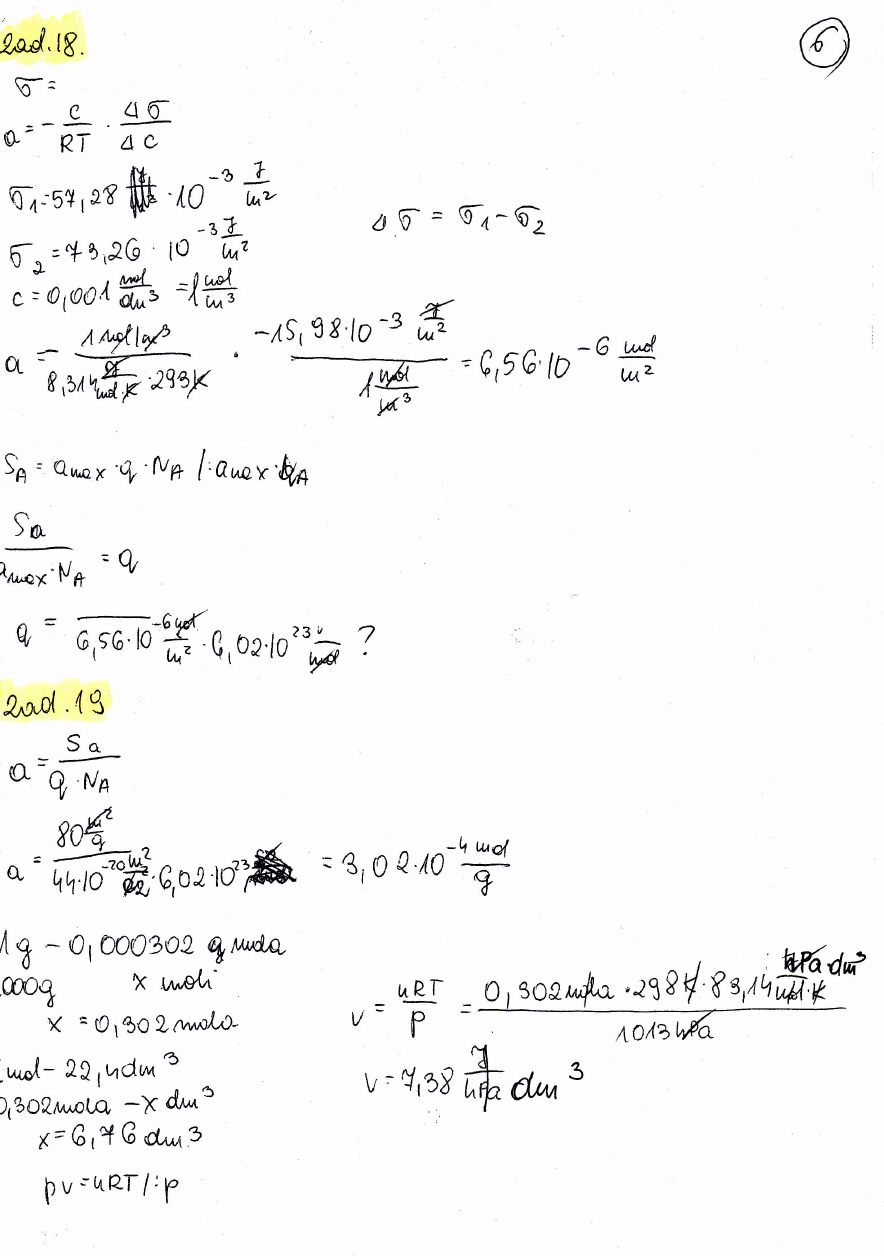 zad.18.
6
σ =
a = - c/RT · Δσ/Δc
σ1 = 57,28 · 10^-3 J/m²
Δσ = σ1 - σ2
σ2 = 73,26 · 10^-3 J/m²
c = 0,001 mol/dm³ = 1 mol/m³
a = - 1 mol/m³ / 8,314 J/mol·K · 293K · -15,98·10^-3 J/m² / 1 mol/m³ = 6,56·10^-6 mol/m²
SA = amax · q · NA /: amax · NA
Sa / amax · NA = q
q = / 6,56·10^-6 mol/m² · 6,02·10^23 1/mol ?
zad.19
a = Sa / q · NA
a = 80 m²/g / 44·10^-20 m² · 6,02·10^23 = 3,02·10^-4 mol/g
1g - 0,000302 mola
000g x moli
x = 0,302 mola
mol - 22,4 dm³
0,302 mola - x dm³
x = 6,76 dm³
pv = nRT /: p
v = nRT/p = 0,302 mola · 298 K · 83,14 hPa dm³/mol·K / 1013 hPa
v = 7,38 dm³